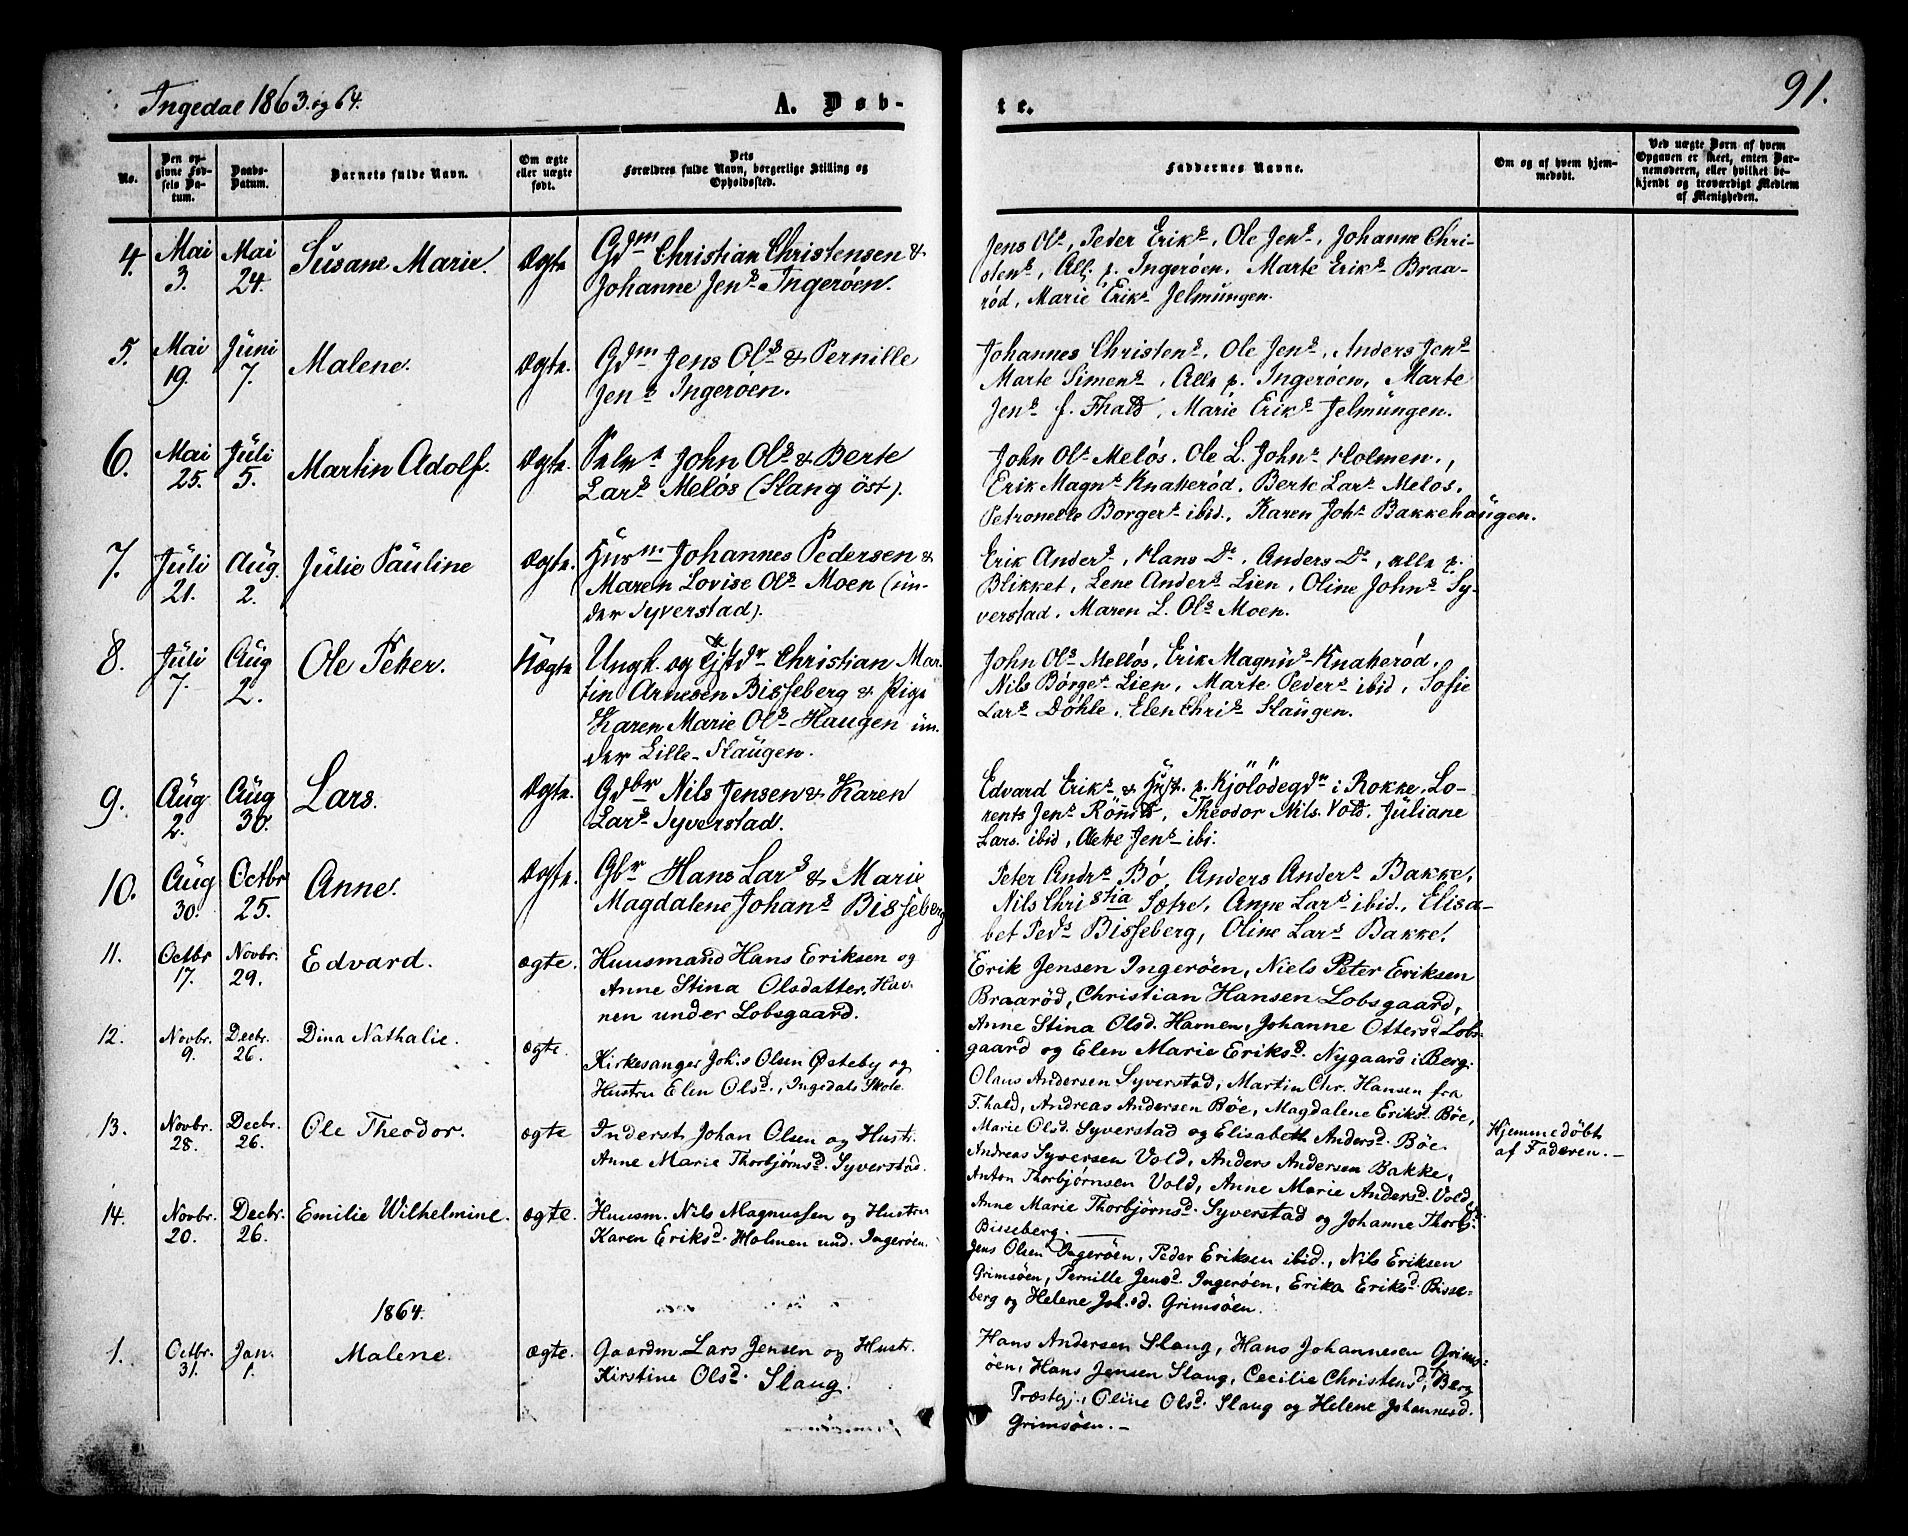 Ingedal 1863. og 64.
A. Døb-
te.
91.
No.
Den op-
givne Fød-
sels Da-
tum.
Daabs-
Datum.
Barnets fulde Navn.
Om ægte
eller uægte
født.
Dets
Forældres fulde Navn, borgerlige Stilling og
Opholdssted.
Faddernes Navne.
Om og af hvem hjem-
medøbt.
Ved uægte Børn af hvem
Opgaven er skeet, enten Bar-
nemoderen, eller hvilket be-
kjendt og troværdigt Medlem
af Menigheden.
4. Mai 3. Mai 24. Susane Marie. Ægte
Gdm Christian Christensen &
Johanne Jens Ingerøen.
Jens Ols, Peder Eriks, Ole Jens, Johanne Chri-
stens, Alle p. Ingerøen. Marte Eriks Braa-
rød, Marie Eriks Jelmüngen.
5. Mai 19. Juni 7. Malene. Ægte.
Gdm Jens Ols & Pernille
Jens Ingerøen.
Johannes Christens, Ole Jens, Anders Jens
Marte Simens, Alle p. Ingerøen, Marte
Jens f. Fhald, Marie Eriks Jelmüngen.
6. Mai 25. Jüli 5. Martin Adolf. Ægte.
John Ols & Berte
Lars Meløs (Slang øst).
John Ols Meløs. Ole L. Johns Holmen.,
Erik Magns Knatterød. Berte Lars Meløs.
Petronelle Borgers ibid., Karen Johs Bakkehaügen.
7. Jüli 21. Aug. 2. Jülie Paüline Ægte.
Husm Johannes Pedersen &
Maren Lovise Ols Moen (ün-
der Syverstad).
Erik Anders, Hans Do, Anders Do, alle p.
Blikket, Lene Anders Lien, Oline Johns Sy-
verstad, Maren L. Ols Moen.
8. Jüli 7. Aüg 2. Ole Petter. Uægte
Ungk. og Christian Mar-
tin Arnesen Bisseberg & Pige
Karen Marie Ols Haugen ün-
der Lille-Slaügen.
John Ols Melløs, Erik Magnüs Knatterød.
Nils Børges Lien, Marte Peders ibid, Sofie
Lars Døhle, Elen Chris Slaügen.
9. Aüg 2. Aüg 30. Lars. Ægte.
Gdbr Nils Jensen & Karen
Lars Syverstad.
Edvard Eriks & Hüst. p. Kjølødegdn i Rokke, Lo-
rents Jens Theodor Nils. Vold, Jüliane
Lars. ibid, Aette Jens ibi.
10. Aüg 30. Octbr 25. Anne. Ægte.
Gbr Hans Lars & Marie
Magdalene Johans Bisseberg
Peter Andrs Bø, Anders Anders Bakke,
Nils Christia Sætre, Anne Lars ibid., Elisa-
bet Peds Bisseberg, Oline Lars Bakke.
11. Octbr 17. Novbr. 29. Edvard. ægte.
Huusmand Hans Eriksen og
Anne Stina Olsdatter. Hav-
nen under Lobsgaard.
Erik Jensen Ingerøen, Niels Peter Eriksen
Braarød, Christian Hansen Lobsgaard,
Anne Stina Olsd. Havnen, Johanne Ottersd. Lobs-
gaard og Elen Marie Eriksd. Nygaard i Berg.
12. Novbr. 9. Decbr. 26. Dina Nathalie. ægte.
Kirkesanger Joh:s Olsen Østeby og
Hustru Elen Olsd., Ingedals Skole.
Olaus Andersen Syverstad, Martin Chr. Hansen fra
F.hald, Andreas Andersen Bøe, Magdalene Eriksd. Bøe,
Marie Olsd. Syverstad og Elisabeth Andersd. Bøe
13. Novbr. 28. Decbr. 26. Ole Theodor. ægte
Inderst Johan Olsen og Hustr.
Anne Marie Thorbjørnsd. Syverstad.
Andreas Syversen Vold, Anders Andersen Bakke,
Anton Thorbjørnsen Vold, Anne Marie Andersd. Vold,
Anne Marie Thorbjørnsd. Syverstad og Johanne Thorbsd.
Bisseberg.
Hjemmedøbt
af Faderen.
14. Novbr. 20. Decbr. 26. Emilie Wilhelmine. ægte.
Huusm. Nils Magnussen og Hustru
Karen Eriksd. Holmen und. Ingerøen.
Jens Olsen Ingerøen, Peder Eriksen ibid., Nils Eriksen
Grimsøen, Pernille Jensd. Ingerøen, Erika Eriksd. Bisse-
berg og Helene Joh.sd. Grimsøen.
1864.
1. Octbr. 31. Jan. 1. Malene. ægte.
Gaardm. Lars Jensen og Hustr.
Kirstine Olsd. Slaug.
Hans Andersen Slaug, Hans Johannesen Grims-
øen, Hans Jensen Slaug, Cecilie Christensd. i Berg
Præstegj., Oline Olsd. Slaug og Helene Johannesd.
Grimsøen.